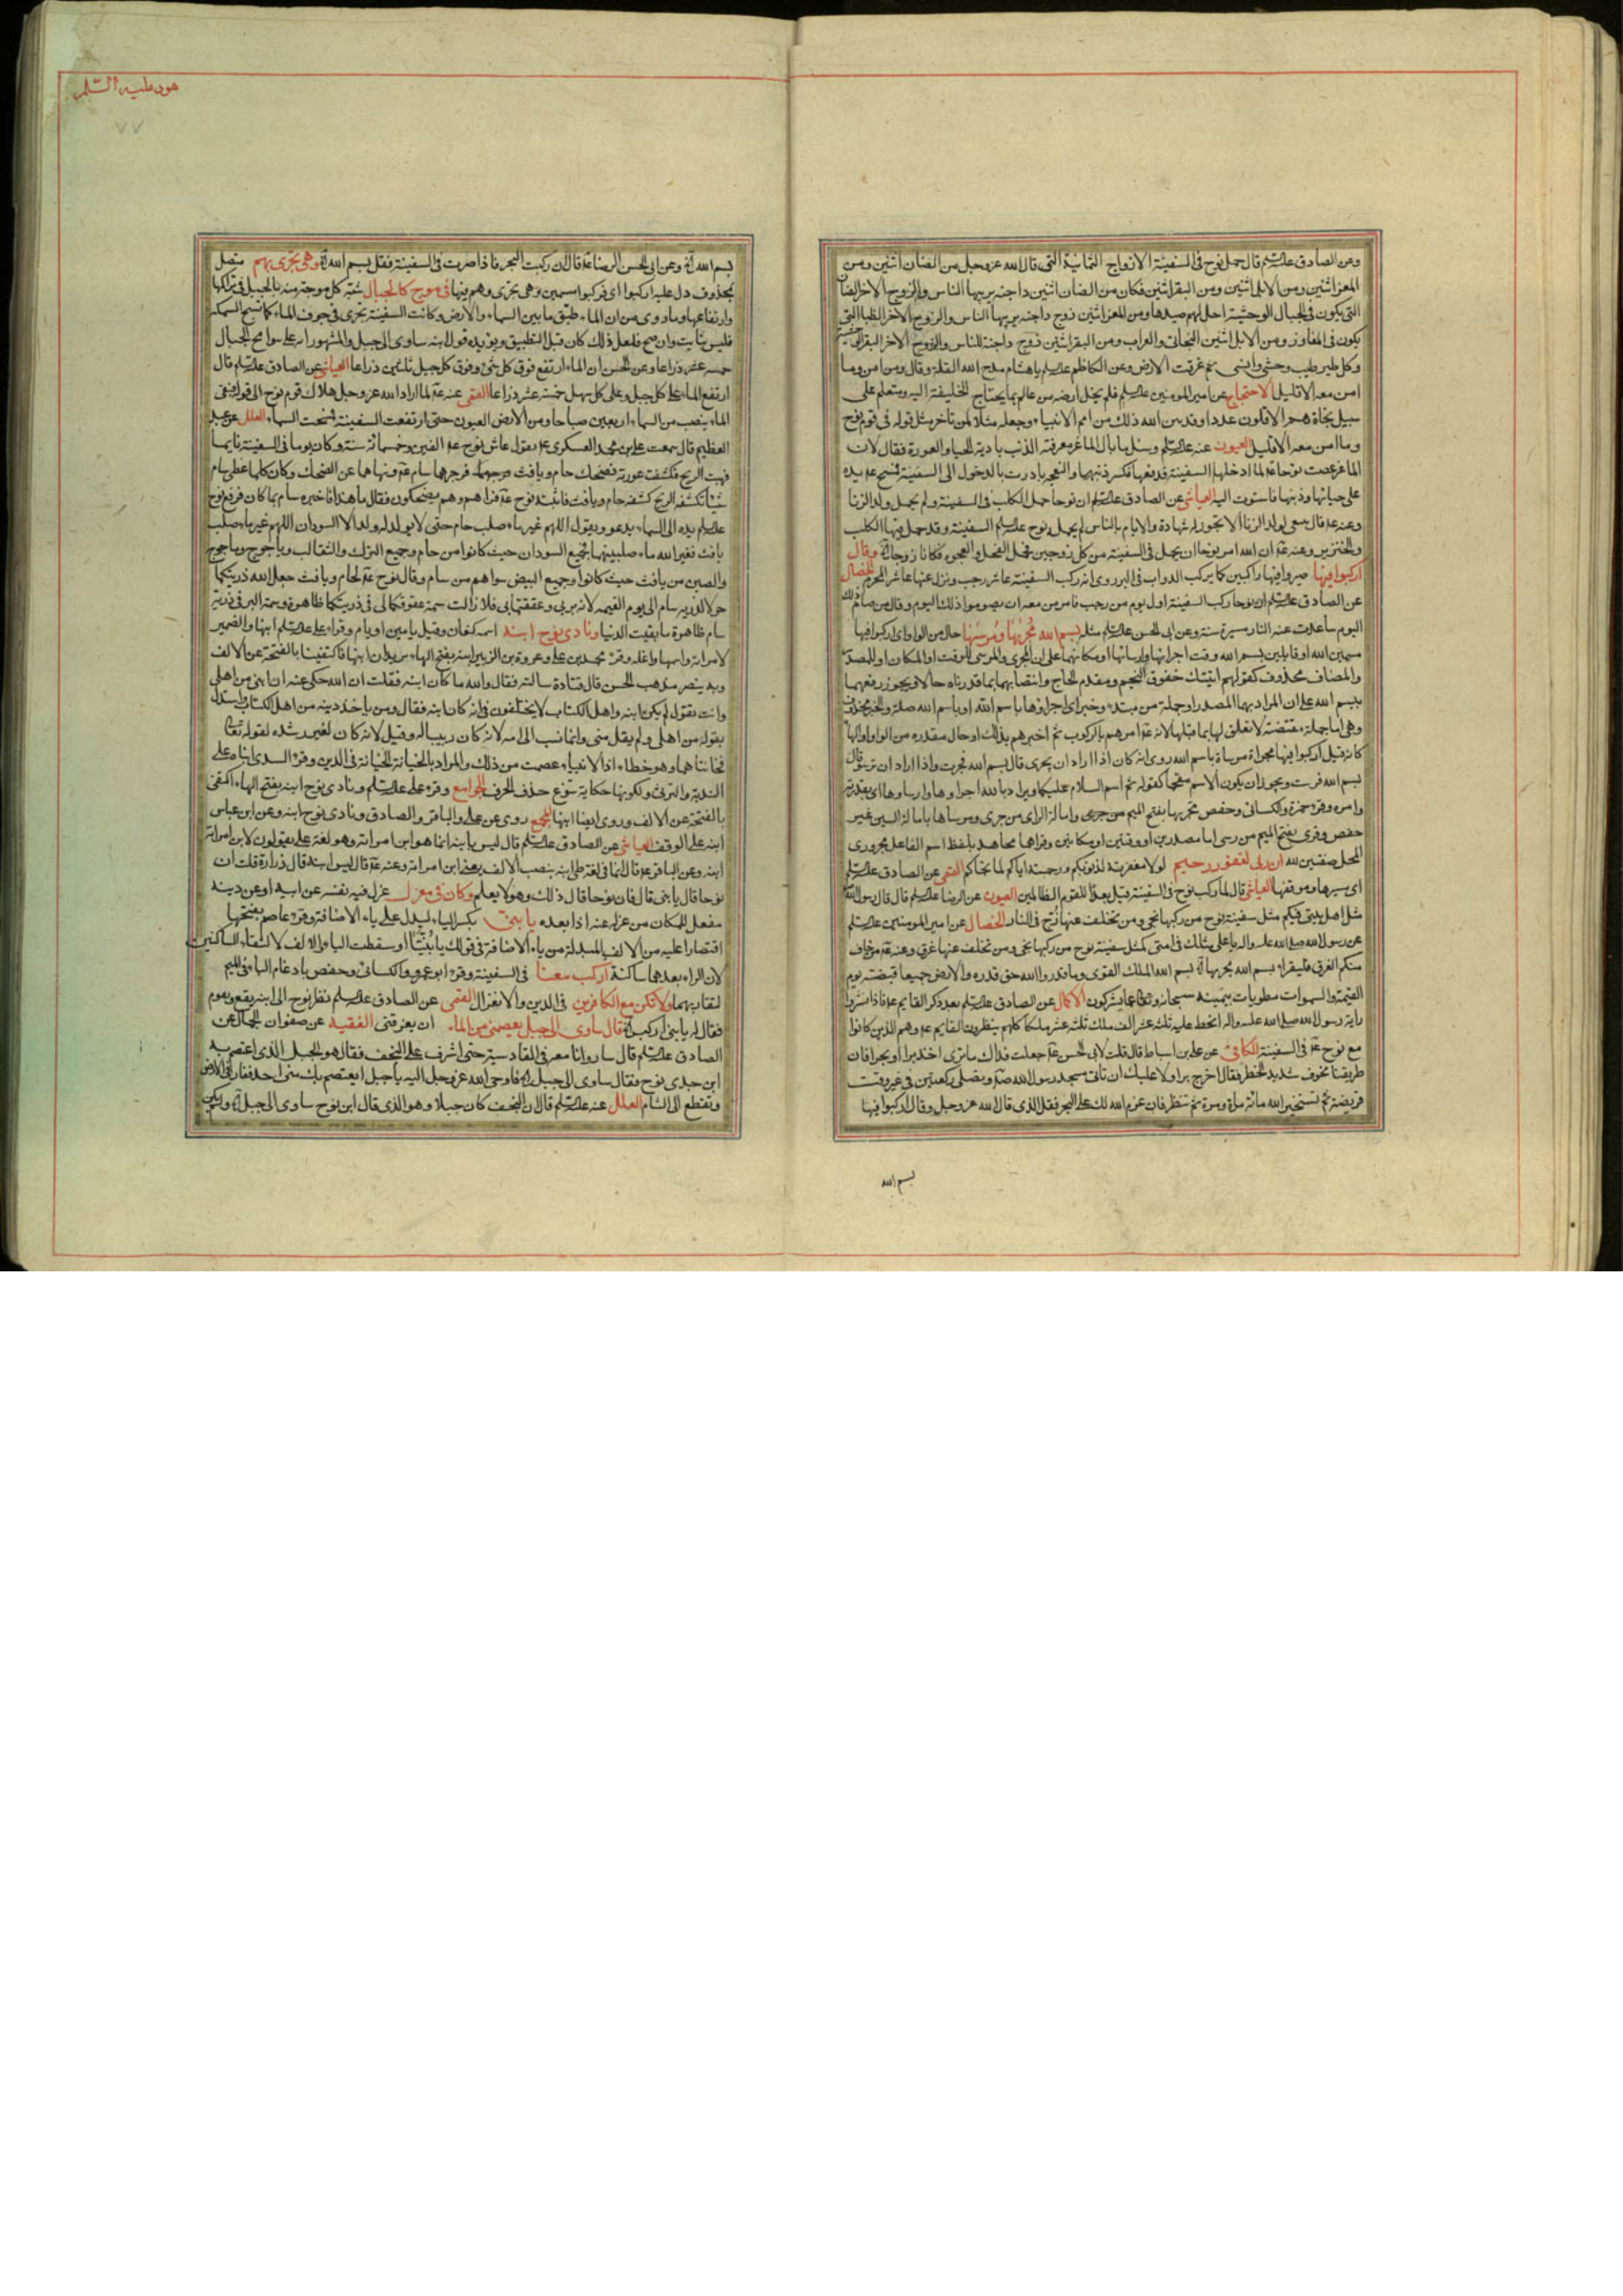 وعن الصادق عليه السلم قال حمل نوح في السفينة الازواج الثمانية التي قال الله عز وجل من الضان اثنين ومن
المعز اثنين ومن الابل اثنين ومن البقر اثنين فكان من الضان اثنين داجنة يربيها الناس والزوج الاخر الضان
التي يكون في الجبال الوحشية احل لهم صيدها ومن المعز اثنين زوج داجنة يربيها الناس والزوج الاخر الظبا التي
يكون في المفاوز ومن الابل اثنين البخاتي والعراب ومن البقر اثنين زوج داجنة للناس والزوج الاخر البقر الوحشية
وكل طير طيب وحشي وانسي ثم غرقت الارض وعن الكاظم عليه السلم يا هشام مدح الله القلة وقال ومن امن وما
امن معه الا قليل الاحتجاج عن امير المومنين عليه السلم فلم يخل ارضه من عالم بما يحتاج الخليقة اليه ومتعلم على
سبيل نجاة هم الاقلون عددا وقد بين الله ذلك من امم الانبياء وجعله مثلا لمن تاخر مثل قوله في قوم نوح
وما امن معه الا قليل العيون عنه عليه السلم وسئل ما بال الماعز مفرقعة الذنب بادية الحيا والعورة فقال لان
الماعز عصت نوحا عه لما ادخلها السفينة فدفعها فكسر ذنبها والنعجة بادرت بالدخول الى السفينة فمسح عه يده
على حيائها وذنبها فاستوت اليه العياشي عن الصادق عليه السلم ان نوحا حمل الكلب في السفينة ولم يحمل ولد الزنا
وعنه عه قال ينبغي لولد الزنا الا يجوز له شهادة ولا يام بالناس لم يحمله نوح عليه السلم السفينة وقد حمل فيها الكلب
والخنزير وعنه عه ان الله امر نوحا ان يحمل في السفينة من كل زوجين فحمل الفحل والعجوة فكانا زوجا وقال
اركبوا فيها صيروا فيها راكبين كما يركب الدواب في البر روي انه ركب السفينة عاشر رجب ونزل عنها عاشر المحرم الخصال
عن الصادق عليه السلم ان نوحا ركب السفينة اول يوم من رجب فامر من معه ان يصوموا ذلك اليوم وقال من صام ذلك
اليوم تباعدت عنه النار مسيرة سنة وعن ابي الحسن عليه السلم مثله بسم الله مجريها ومرسيها حال من الواو اي اركبوا فيها
مسمين الله او قايلين بسم الله وقت اجرائها وارسائها او مكانهما على ان المجرى والمرسى للوقت او المكان او المصدر
والمضاف محذوف كقولهم اتيتك خفوق النجم ومقدم الحاج وانتصابهما بما قدرناه حالا ويجوز رفعهما
ببسم الله على ان المراد بهما المصدر او جملة من مبتدء وخبر اي اجراؤها باسم الله او باسم الله صلة والخبر محذوف
وهي اما جملة مقتضبة لا تعلق لها بما قبلها لانه عه امرهم بالركوب ثم اخبرهم بذلك او حال مقدرة من الواو او الهاء
كانه قيل اركبوا فيها مجراة مرساة باسم الله روي انه كان اذا اراد ان يجري قال بسم الله فجرت واذا اراد ان ترسو قال
بسم الله فرست ويجوز ان يكون الاسم مقحما كقوله ثم اسم السلام عليكما ويراد بالله اجراوها وارساوها اي بقدرته
وامره وقرء حمزة والكسائي وحفص مجريها بفتح الميم من جرى وامالة الراي من جرى ومرساها بامالة السين غير
حفص وقرئ بفتح الميم من رسى اما مصدرين او وقتين او مكانين وقراها مجاهد بلفظ اسم الفاعل مجروري
المحل صفتين لله ان ربي لغفور رحيم لولا مغفرته لذنوبكم ورحمته اياكم لما نجاكم القمي عن الصادق عليه السلم
اي مسيرها وموقفها العياشي قال لما ركب نوح في السفينة قيل بعدا للقوم الظالمين العيون عن الرضا عليه السلم قال قال رسول الله
مثل اهل بيتي فيكم مثل سفينة نوح من ركبها نجى ومن تخلف عنها زج في النار الخصال عن امير المومنين عليه السلم
عن رسول الله صلى الله عليه واله يا على مثلك في امتي كمثل سفينة نوح من ركبها نجى ومن تخلف عنها غرق وعنه عه من خاف
منكم الغرق فليقرا بسم الله مجريها بسم الله الملك القوي وما قدروا الله حق قدره والارض جميعا قبضته يوم
القيمة والسموات مطويات بيمينه سبحانه وتعالى عما يشركون الاكمال عن الصادق عليه السلم بعد ذكر القايم عه فاذا نشر
راية رسول الله صلى الله عليه واله انحط عليه ثلثة عشر الف ملك وثلثة عشر ملكا كلهم ينتظرون القايم عه وهم الذين كانوا
مع نوح عه في السفينة الكافي عن علي بن اسباط قال قلت لابي الحسن عه جعلت فداك ما ترى اخذ برا او بحرا فان
طريقنا مخوف شديد الخطر فقال اخرج برا ولا عليك ان تاتي مسجد رسول الله صه وتصلى ركعتين في غير وقت
فريضة ثم تستخير الله مائة مرة ومرة ثم تنظر فان عزم الله لك على البحر فقل الذي قال الله عز وجل وقال اركبوا فيها
بسم الله
هود عليه السلم
٧٧
بسم الله وعن ابي الحسن الرضا عه قال ان ركبت البحر فاذا صرت في السفينة فقل بسم الله وهي تجري بهم متصل
بمحذوف دل عليه اركبوا اي فركبوا مسمين وهي تجري وهم فيها في موج كالجبال شبه كل موجة منه بالجبل في تراكمها
وارتفاعها وما روي من ان الماء طبق ما بين السماء والارض وكانت السفينة تجري في جوف الماء كما تسبح السمكة
فليس بثابت وان صح فلعل ذلك كان قبل التطبيق ويؤيده قول ابنه ساوي الى جبل والمشهور انه علا شوامخ الجبال
خمسة عشر ذراعا وعن الحسن ان الماء ارتفع فوق كل شئ وفوق كل جبل ثلثين ذراعا العياشي عن الصادق عليه السلم قال
ارتفع الماء على كل جبل وعلى كل سهل خمسة عشر ذراعا القمي عنه عه لما اراد الله عز وجل هلاك قوم نوح الى قوله فبقى
الماء ينصب من السماء اربعين صباحا ومن الارض العيون حتى ارتفعت السفينة فمسحت السماء العلل عن عبد
العظيم قال سمعت علي بن محمد العسكري عه يقول عاش نوح عه الفين وخمسمائة سنة وكان يوما في السفينة نايما
فهبت الريح فكشفت عورته فضحك حام ويافث فزجرهما سام عه ونهاهما عن الضحك وكان كلما غطى سام
شيئا تكشفه الريح كشفه حام ويافث فانتبه نوح عه فراهم وهم يضحكون فقال ما هذا فاخبره سام بما كان فرفع نوح
عليه السلم يده الى السماء يدعو ويقول اللهم غير ماء صلب حام حتى لا يولد له ولد الا السودان اللهم غير ماء صلب
يافث فغير الله ماء صلبيهما فجميع السودان حيث كانوا من حام وجميع الترك والثقالب وياجوج وماجوج
والصين من يافث حيث كانوا وجميع البيض سواهم من سام وقال نوح عه لحام ويافث جعل الله ذريتكما
خولا لذرية سام الى يوم القيمة لانه بر بي وعققتماني فلا زالت سمة عقوقكما لي في ذريتكما ظاهرة وسمة البر في ذرية
سام ظاهرة ما بقيت الدنيا ونادى نوح ابنه اسمه كنعان وقيل يامين او يام وقراء علي عليه السلم ابنها والضمير
لامراته واسمها واغلة وقرء محمد بن علي وعروة بن الزبير ابنه بفتح الهاء يريدان ابنها فاكتفينا بالفتحة عن الالف
وبه ينصر مذهب الحسن قال قتادة سالته فقال والله ما كان ابنه فقلت ان الله حكى عنه ان ابني من اهلي
وانت تقول لم يكن ابنه واهل الكتاب لا يختلفون في انه كان ابنه فقال ومن ياخذ دينه من اهل الكتاب واستدل
بقوله من اهلي ولم يقل مني وانما نسب الى امه لانه كان ربيبا له وقيل لانه كان لغير رشده لقوله تعالى
فخانتاهما وهو خطاء اذ الانبياء عصمت من ذلك والمراد بالخيانة الخيانة في الدين وقرء السدي ابناه على
الندبة والترثي ولكونها حكاية سوغ حذف الحرف الجوامع وقرء علي عليه السلم ونادى نوح ابنه بفتح الهاء اكتفى
بالفتحة عن الالف وروي ايضا ابنها المجمع روي عن علي والباقر والصادق ونادى نوح ابنه وعن ابن عباس
ابنه على الوقف العياشي عن الصادق عليه السلم قال ليس بابنه انما هو ابن امراته وهو لغة طي يقولون لابن امراته
ابنه وعن الباقر عه قال انما في لغة طي ابنه بنصب الالف يعني ابن امراته وعنه عه قال ليس ابنه قال زرارة قلت ان
نوحا قال يا بني قال فان نوحا قال ذلك وهو لا يعلم وكان في معزل عزل فيه نفسه عن ابيه او عن دينه
مفعل للمكان من عزله عنه اذا بعده يا بني بكسر الياء ليدل على ياء الاضافة وقرء عاصم بفتحها
اقتصارا عليه من الالف المبدلة من ياء الاضافة في قولك يا بنيا او سقطت الياء والالف لالتقاء الساكنين
لان الراء بعدهما ساكنة اركب معنا في السفينة وقرء ابو عمرو والكسائي وحفص بادغام الباء في الميم
لتقاربهما ولا تكن مع الكافرين في الدين والانعزال القمي عن الصادق عليه السلم نظر نوح الى ابنه يقع ويقوم
فقال له يا بني اركب قال ساوى الى جبل يعصمني من الماء ان يغرقني الفقيه عن صفوان الجمال عن
الصادق عليه السلم قال سار وانا معه في القادسية حتى اشرف على النجف فقال هو الجبل الذي اعتصم به
ابن جدي نوح فقال ساوى الى جبل فاوحى الله عز وجل اليه يا جبل ايعتصم بك مني احد فغار في الارض
وتقطع الى الشام العلل عنه عليه السلم قال ان النجف كان جبلا وهو الذي قال ابن نوح ساوى الى جبل ولم يكن